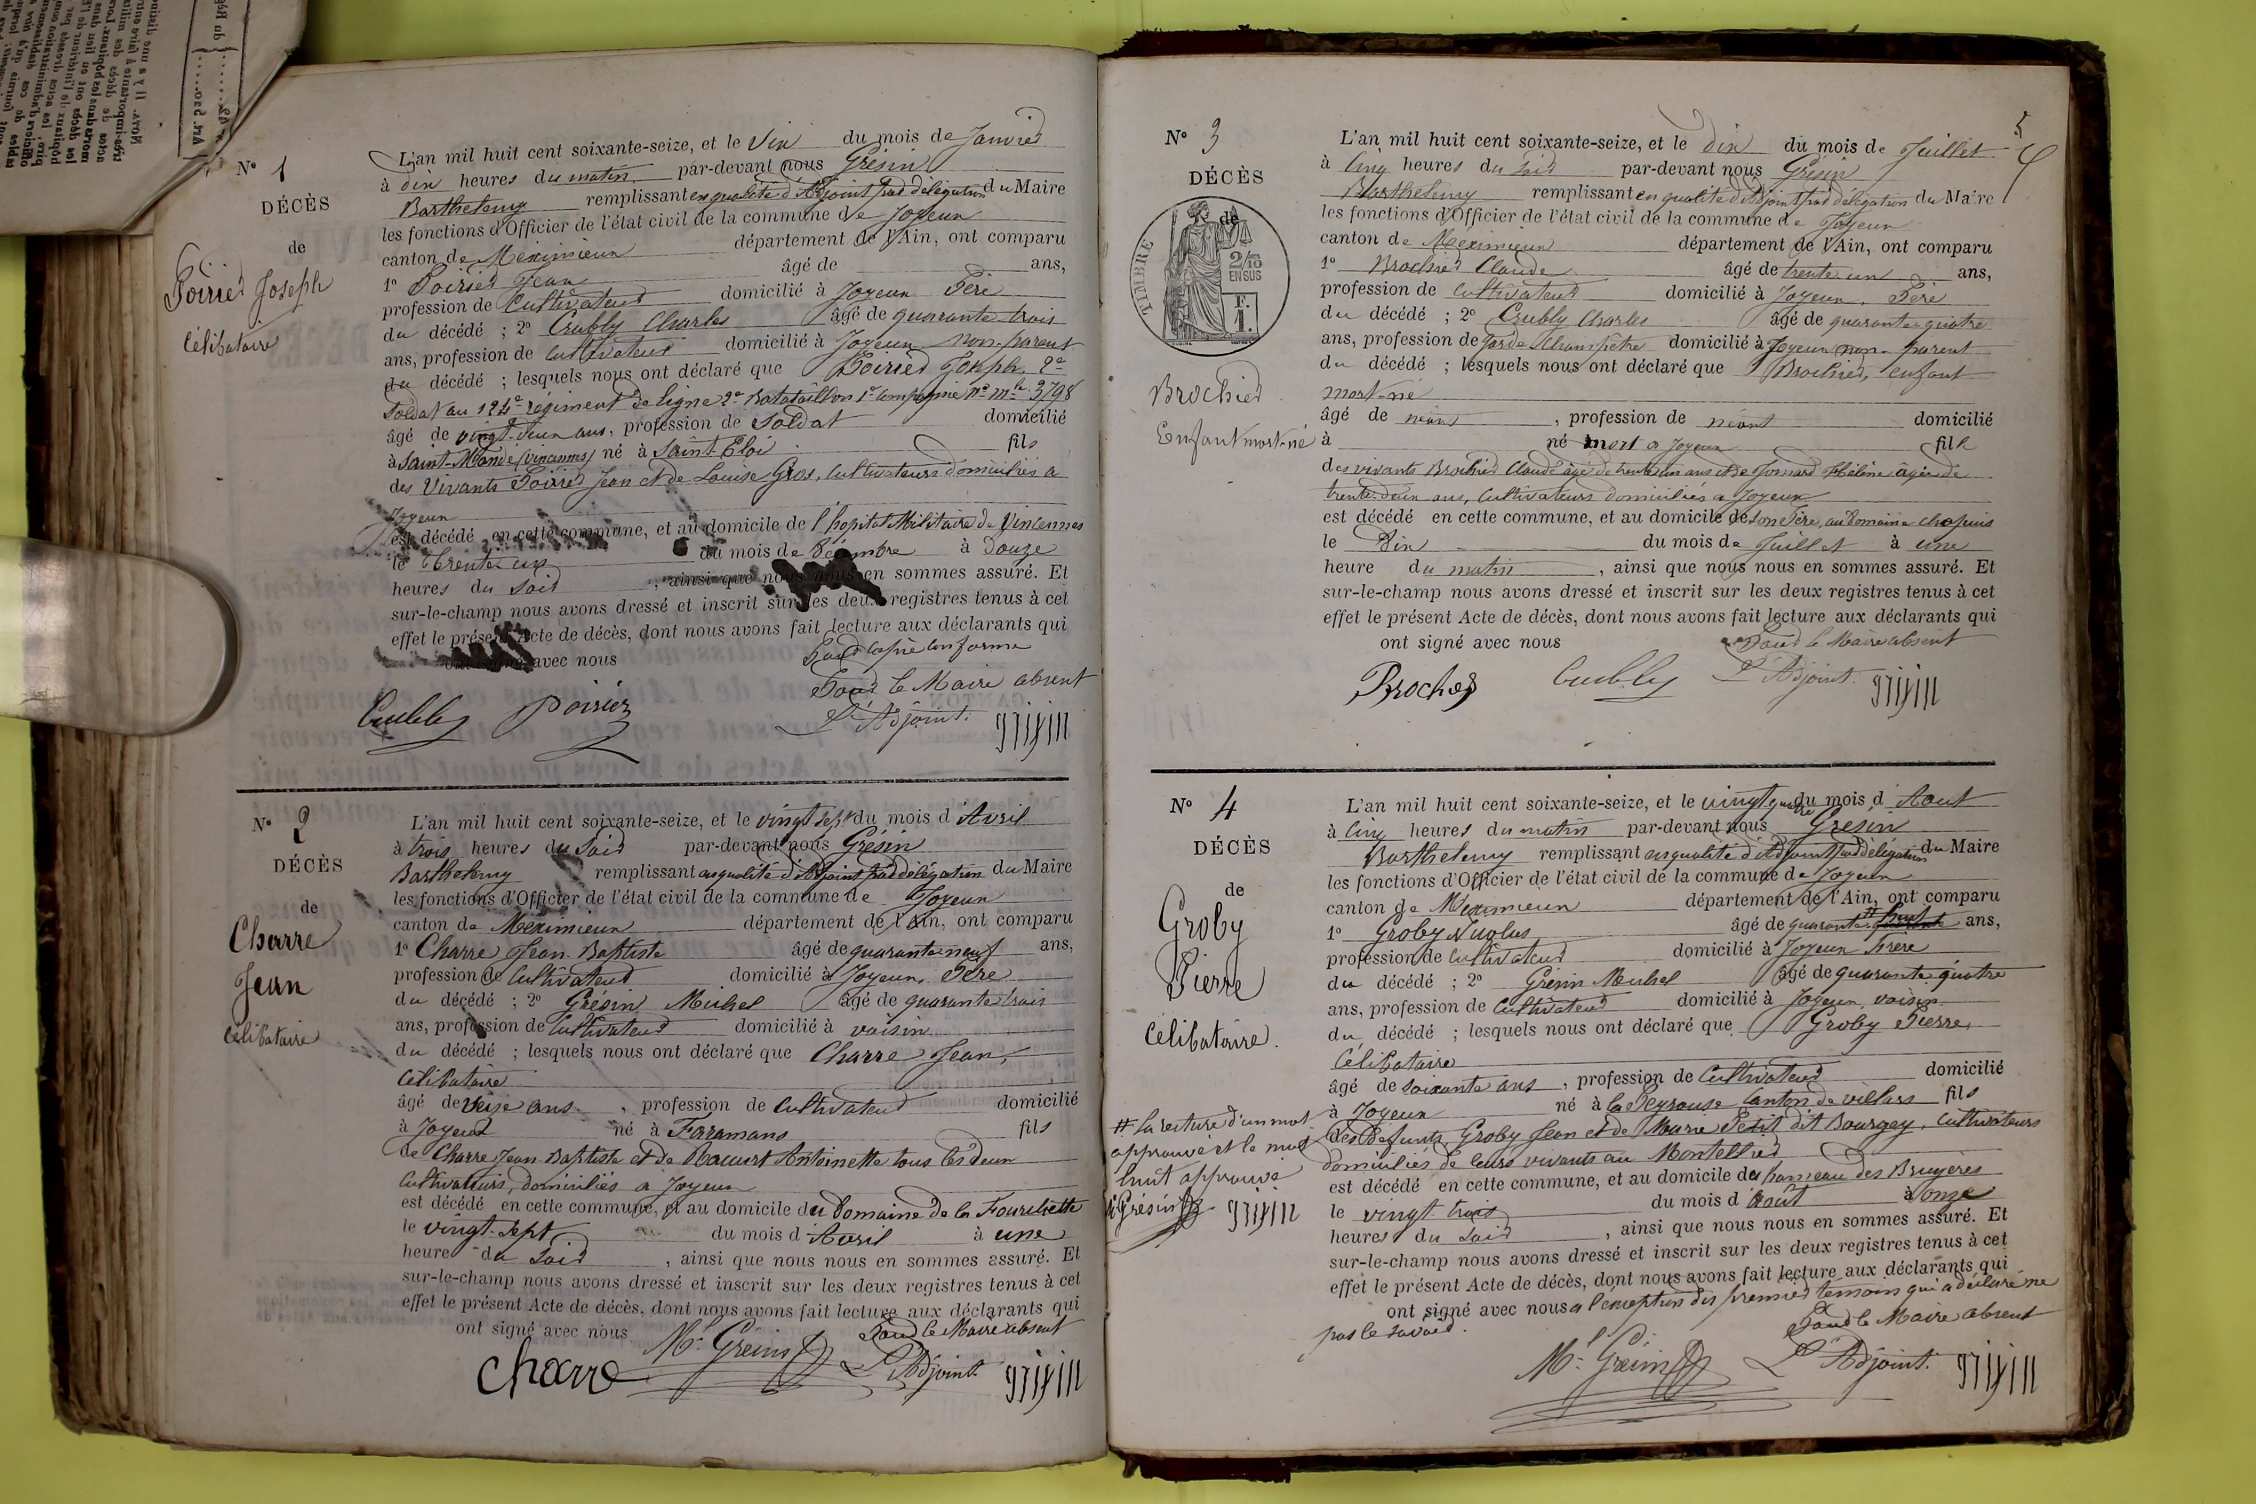 N° 1
DÉCÈS
de
Poirier Joseph
Célibataire
L'an mil huit cent soixante-seize, et le Six du mois de Janvier
à dix heures du matin par-devant nous Grésin
Barthelemy remplissant en qualité d'Adjoint par délégation du Maire
les fonctions d'Officier de l'état civil de la commune de Joyeux
canton de Meximieux département de l'Ain, ont comparu
1° Poirier Jean âgé de ans,
profession de Cultivateur domicilié à Joyeux Père
du décédé ; 2° Cubbly Charles âgé de quarante-trois
ans, profession de Cultivateur domicilié à Joyeux non-parent
du décédé ; lesquels nous ont déclaré que Poirier Joseph, 2e
Soldat au 124e régiment de ligne 2e Batataillon 1e Compagnie No Mle 3798
âgé de vingt-deux ans, profession de Soldat domicilié
à Saint-Mandé (Vincennes) né à Saint-Eloi fils
des Vivants Poirier Jean et de Louise Gros, Cultivateurs domiciliés à
Joyeux
est décédé en cette commune, et au domicile de l'hopital Militaire de Vincennes
le trente-un du mois de Décembre à Douze
heures du Soir , ainsi que nous nous en sommes assuré. Et
sur-le-champ nous avons dressé et inscrit sur les deux registres tenus à cet
effet le présent Acte de décès, dont nous avons fait lecture aux déclarants qui
avec nous Pour copie conforme
Pour le Maire absent
Cubbly Poirier L'Adjoint. grésin
N° 2
DÉCÈS
de
Charre
Jean
Célibataire
L'an mil huit cent soixante-seize, et le vingt sept du mois d'Avril
à trois heures du Soir par-devant nous Grésin
Barthelemy remplissant en qualité d'Adjoint par délégation du Maire
les fonctions d'Officier de l'état civil de la commune de Joyeux
canton de Meximieux département de l'Ain, ont comparu
1° Charre Jean-Baptiste âgé de quarante neuf ans,
profession de Cultivateur domicilié à Joyeux, Père
du décédé ; 2° Grésin Michel âgé de quarante trois
ans, profession de Cultivateur domicilié à voisin
du décédé ; lesquels nous ont déclaré que Charre Jean,
Célibataire
âgé de seize ans , profession de Cultivateur domicilié
à Joyeux né à Faramans fils
de Charre Jean-Baptiste et de Antoinette tous les deux
Cultivateurs, domiciliés à Joyeux
est décédé en cette commune, et au domicile du Domaine de la Fourchette
le vingt-sept du mois d'Avril à une
heure du Soir , ainsi que nous nous en sommes assuré. Et
sur-le-champ nous avons dressé et inscrit sur les deux registres tenus à cet
effet le présent Acte de décès, dont nous avons fait lecture aux déclarants qui
ont signé avec nous Pour le Maire absent
Charre Ml Grésin L'Adjoint. grésin
5
N° 3
DÉCÈS
de
TIMBRE
2/10
EN SUS
F.
1.
Brochier
Enfant mort-né
L'an mil huit cent soixante-seize, et le Dix du mois de Juillet
à Cinq heures du Soir par-devant nous Grésin
Barthelemy remplissant en qualité d'Adjoint par délégation du Maire
les fonctions d'Officier de l'état civil de la commune de Joyeux
canton de Meximieux département de l'Ain, ont comparu
1° Brochier Claude âgé de trente-un ans,
profession de Cultivateur domicilié à Joyeux, Père
du décédé ; 2° Cubbly Charles âgé de quarante-quatre
ans, profession de Garde Champêtre domicilié à Joyeux non-parent
du décédé ; lesquels nous ont déclaré que Brochier, enfant
mort-né
âgé de néant , profession de néant domicilié
à né mort à Joyeux fils
des vivants Brochier Claude âgé de trente un ans et de Jomard Hélène âgée de
trente-deux ans, Cultivateurs domiciliés à Joyeux
est décédé en cette commune, et au domicile de son Père, au Domaine Chapuis
le Dix du mois de Juillet à une
heure du matin , ainsi que nous nous en sommes assuré. Et
sur-le-champ nous avons dressé et inscrit sur les deux registres tenus à cet
effet le présent Acte de décès, dont nous avons fait lecture aux déclarants qui
ont signé avec nous Pour le Maire absent
Brochier Cubbly L'Adjoint. grésin
N° 4
DÉCÈS
de
Groby
Pierre
Célibataire.
L'an mil huit cent soixante-seize, et le vingt quatre du mois d'Aout
à Cinq heures du matin par-devant nous Grésin
Barthelemy remplissant en qualité d'Adjoint par délégation du Maire
les fonctions d'Officier de l'état civil de la commune de Joyeux
canton de Meximieux département de l'Ain, ont comparu
# huit
1° Groby Nicolas âgé de quarante ans,
profession de Cultivateur domicilié à Joyeux frère
du décédé ; 2° Grésin Michel âgé de quarante-quatre
ans, profession de Cultivateur domicilié à Joyeux voisin
du décédé ; lesquels nous ont déclaré que Groby Pierre,
Célibataire
âgé de soixante ans , profession de Cultivateur domicilié
à Joyeux né à la Peyrouse Canton de villars fils
des Défunts, Groby Jean et de Marie Petit dit Bourgey, Cultivateurs
domiciliés de leurs vivants au Montellier
est décédé en cette commune, et au domicile du hameau des Bruyères
le vingt trois du mois d'Août à onze
heures du Soir , ainsi que nous nous en sommes assuré. Et
sur-le-champ nous avons dressé et inscrit sur les deux registres tenus à cet
effet le présent Acte de décès, dont nous avons fait lecture aux déclarants qui
ont signé avec nous à l'exception du premier témoin qui a déclaré ne
pas le savoir. Pour le Maire absent
Ml Grésin L'Adjoint. grésin
# la rature d'un mot
approuvé et le mot
huit approuvé
Grésin grésin